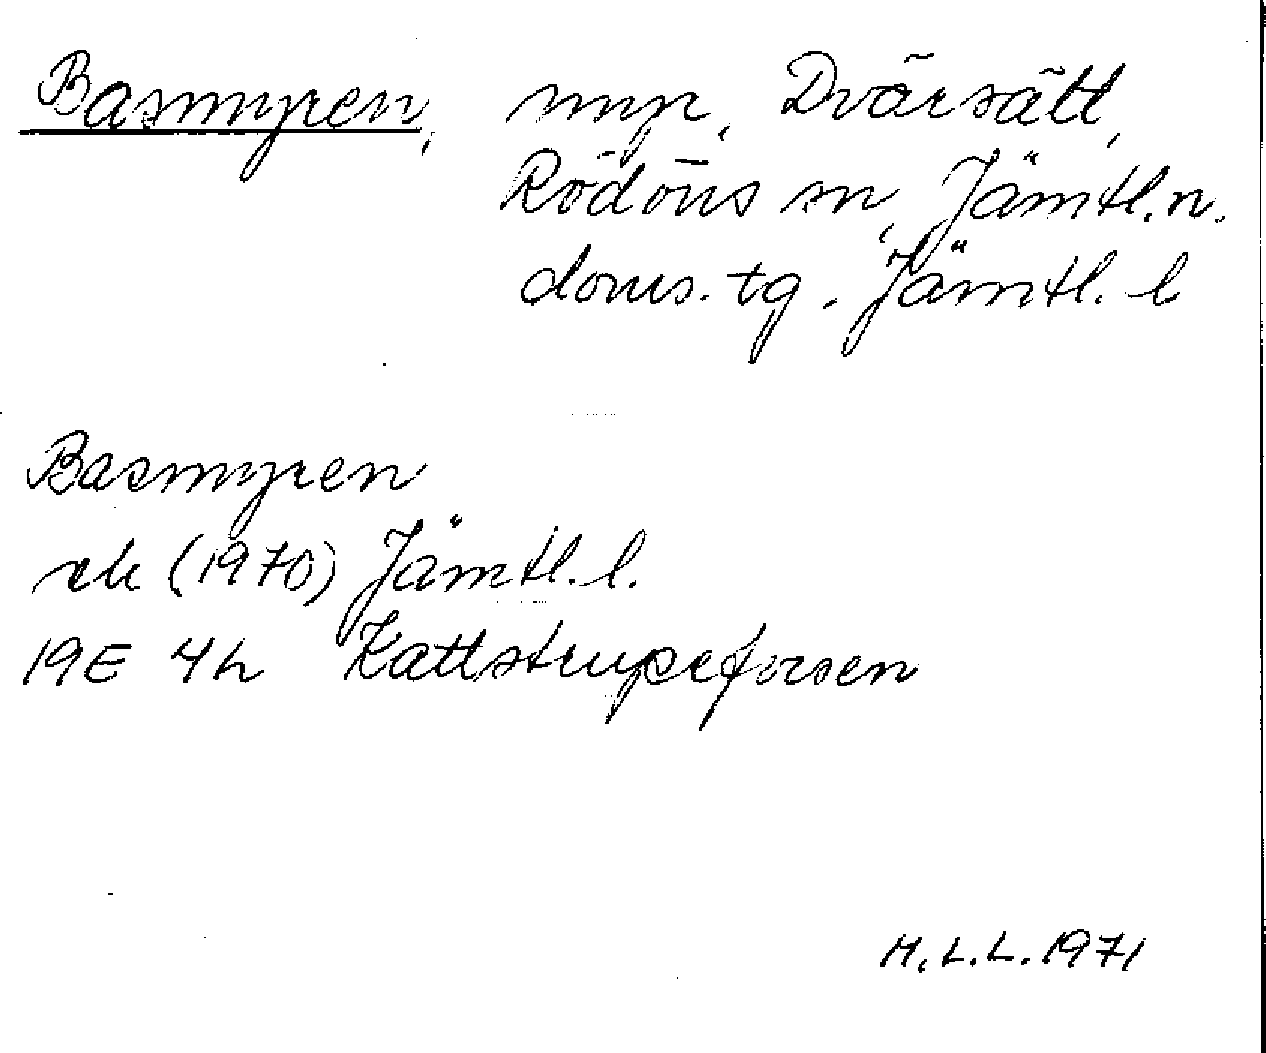 Basmyren, myr, Dvärsätt,
Rödöns sn, Jämtl. n.
doms. tg. Jämtl. l
Basmyren
rek (1970) Jämtl. l.
19E 4h Kattstrupeforsen
H.L.L. 1971